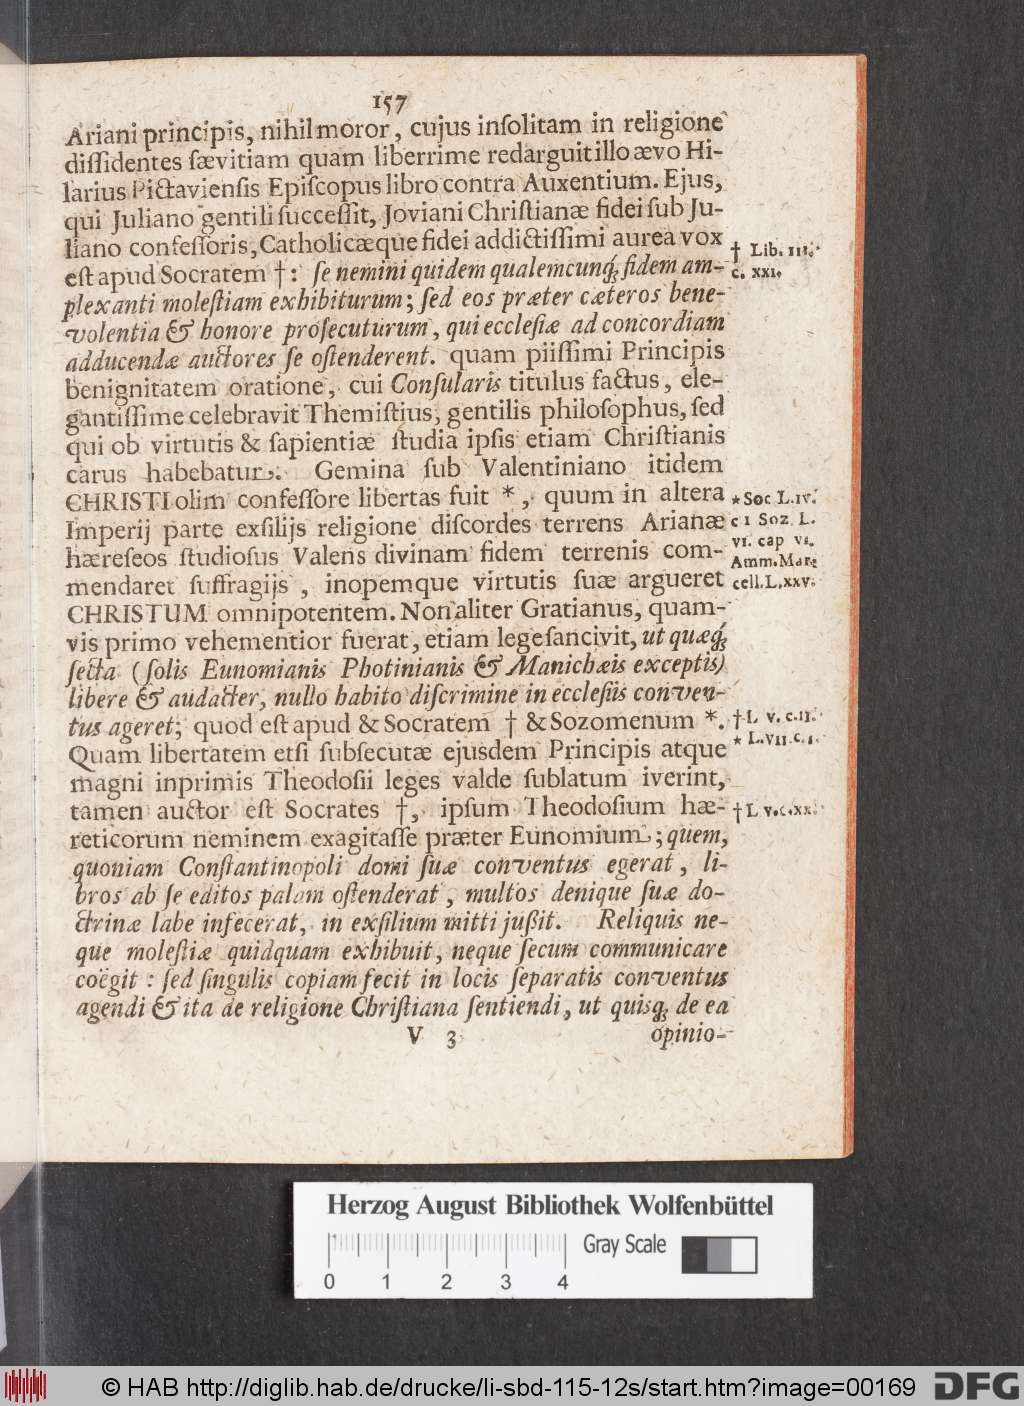 157
Ariani principis, nihil moror, cujus inſolitam in religione
diſſidentes ſævitiam quam liberrime redarguit illo ævo Hi-
larius Pictavienſis Epiſcopus libro contra Auxentium. Ejus,
qui Juliano gentili ſucceſſit, Joviani Chriſtianæ fidei ſub Ju-
liano confeſſoris, Catholicæque fidei addictiſſimi aurea vox
eſt apud Socratem †: ſe nemini quidem qualemcunq; fidem am-
plexanti moleſtiam exhibiturum; ſed eos præter cæteros bene-
volentia & honore proſecuturum, qui eccleſiæ ad concordiam
adducendæ auctores ſe oſtenderent. quam piiſſimi Principis
benignitatem oratione, cui Conſularis titulus factus, ele-
gantiſſime celebravit Themiſtius, gentilis philoſophus, ſed
qui ob virtutis & ſapientiæ ſtudia ipſis etiam Chriſtianis
carus habebatur. Gemina ſub Valentiniano itidem
CHRISTI olim confeſſore libertas fuit *, quum in altera
Imperij parte exſilijs religione diſcordes terrens Arianæ
hæreſeos ſtudioſus Valens divinam fidem terrenis com-
mendaret ſuffragijs, inopemque virtutis ſuæ argueret
CHRISTUM omnipotentem. Non aliter Gratianus, quam-
vis primo vehementior fuerat, etiam lege ſancivit, ut quæq;
ſecta (ſolis Eunomianis Photinianis & Manichæis exceptis)
libere & audacter, nullo habito diſcrimine in eccleſiis conven-
tus ageret; quod eſt apud & Socratem † & Sozomenum *.
Quam libertatem etſi ſubſecutæ ejusdem Principis atque
magni inprimis Theodoſii leges valde ſublatum iverint,
tamen auctor eſt Socrates †, ipſum Theodoſium hæ-
reticorum neminem exagitaſſe præter Eunomium; quem,
quoniam Conſtantinopoli domi ſuæ conventus egerat, li-
bros ab ſe editos palam oſtenderat, multos denique ſuæ do-
ctrinæ labe infecerat, in exſilium mitti juſſit. Reliquis ne-
que moleſtiæ quidquam exhibuit, neque ſecum communicare
coëgit: ſed ſingulis copiam fecit in locis ſeparatis conventus
agendi & ita de religione Chriſtiana ſentiendi, ut quisq; de ea
V 3
opinio-
† Lib. III.
c. XXI.
* Soc L. IV.
c 1 Soz. L.
VI. cap VI.
Amm. Mar-
cell. L. XXV.
† L V. c. II.
* L. VII c. 1.
† L V. c. XX.
Herzog August Bibliothek Wolfenbüttel
0 1 2 3 4
Gray Scale
© HAB http://diglib.hab.de/drucke/li-sbd-115-12s/start.htm?image=00169
DFG